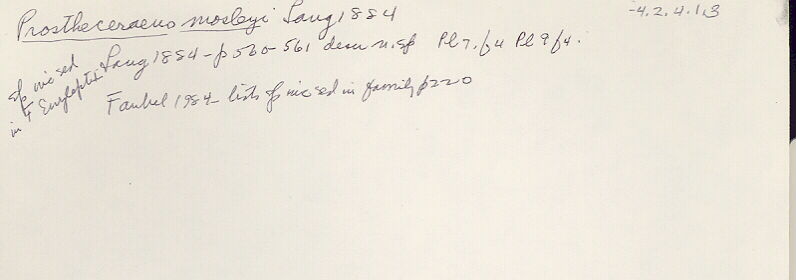 Prostheceraeus moseleyi Lang 1884
-4.2.4.1.3
Lang 1884 - p 560-561 descr n.sp Pl 7, f 4 Pl 9 f 4.
Faubel 1984 - lists sp inc sed in family p 220
sp inc sed
in F Euryleptid